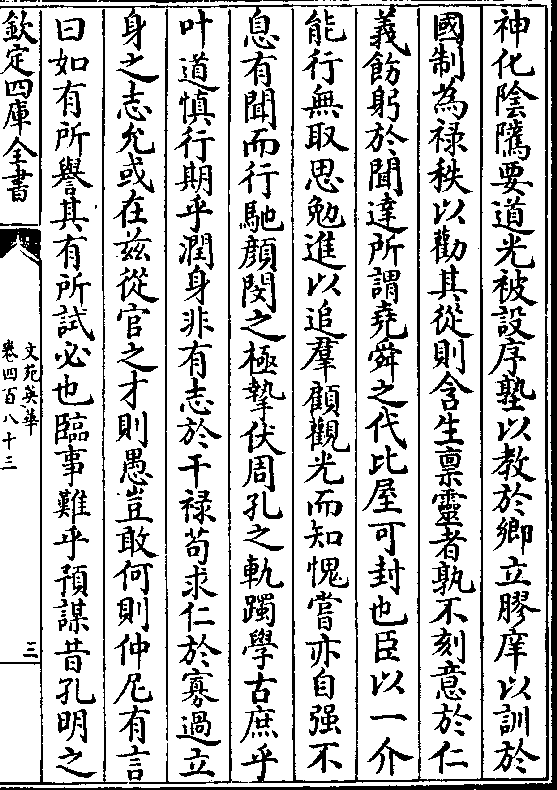 神化陰隲要道光被設序塾以教於鄉立膠庠以訓於
國制為禄秩以勸其從則含生禀靈者孰不刻意於仁
義飭躬於聞達所謂堯舜之代比屋可封也臣以一介
能行無取思勉進以追羣顧觀光而知愧嘗亦自强不
息有聞而行馳顔閔之極摯伏周孔之軌躅學古庶乎
叶道慎行期乎潤身非有志於干禄苟求仁於寡過立
身之志允或在兹從官之才則愚豈敢何則仲尼有言
曰如有所譽其有所試必也臨事難乎預謀昔孔明之
欽定四庫全書
文苑英華
卷四百八十三
三